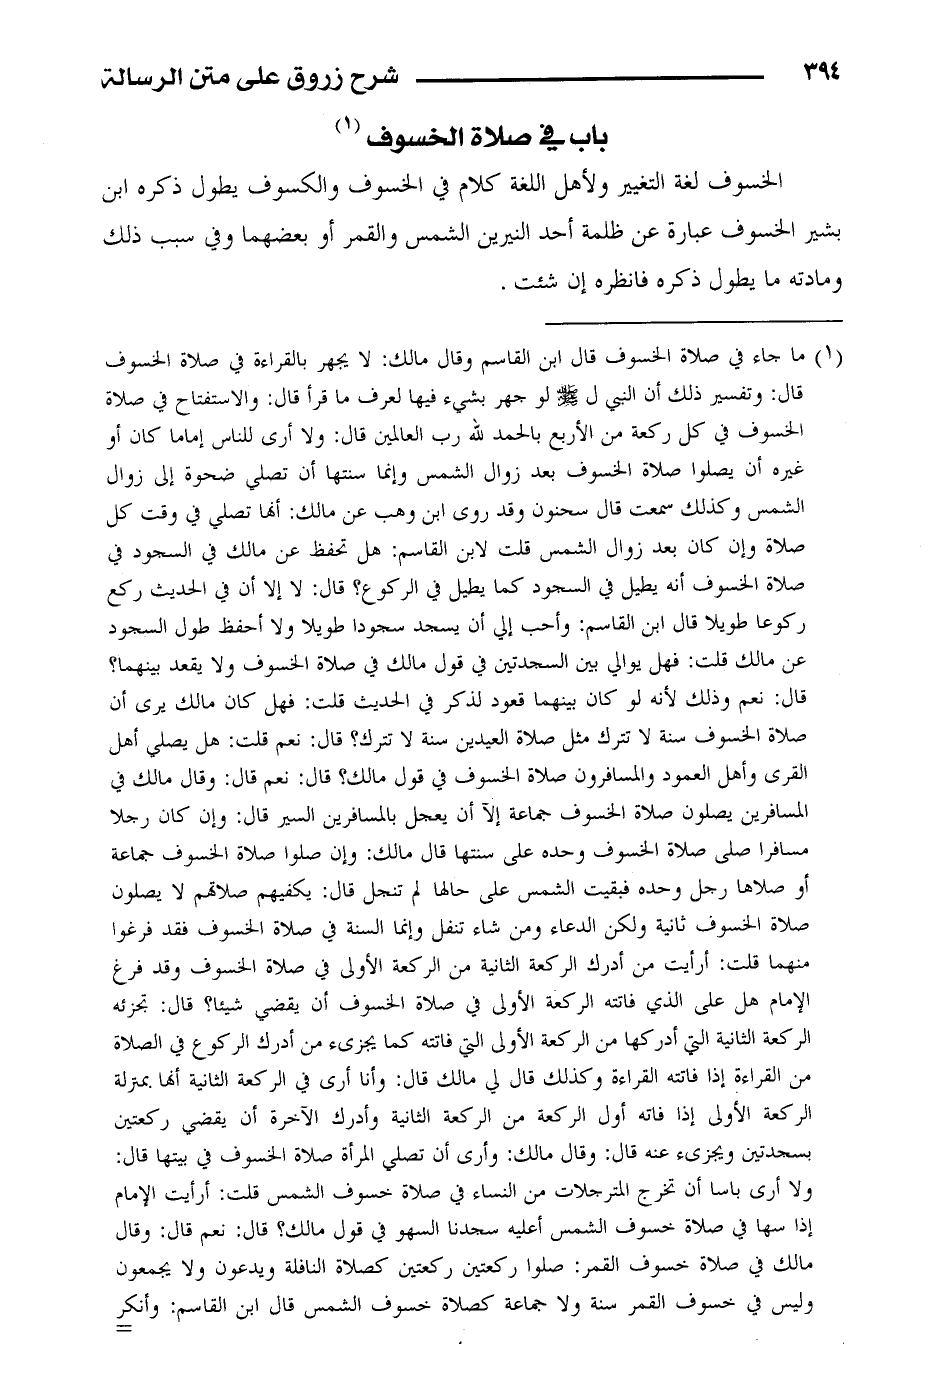 ٣٩٤ شرح زروق على متن الرسالة
باب في صلاة الخسوف (١)
الخسوف لغة التغيير ولأهل اللغة كلام في الخسوف والكسوف يطول ذكره ابن
بشير الخسوف عبارة عن ظلمة أحد النيرين الشمس والقمر أو بعضهما وفي سبب ذلك
ومادته ما يطول ذكره فانظره إن شئت .
(١) ما جاء في صلاة الخسوف قال ابن القاسم وقال مالك: لا يجهر بالقراءة في صلاة الخسوف
قال: وتفسير ذلك أن النبي ل ﷺ لو جهر بشيء فيها لعرف ما قرأ قال: والاستفتاح في صلاة
الخسوف في كل ركعة من الأربع بالحمد لله رب العالمين قال: ولا أرى للناس إماما كان أو
غيره أن يصلوا صلاة الخسوف بعد زوال الشمس وإنما سنتها أن تصلي ضحوة إلى زوال
الشمس وكذلك سمعت قال سحنون وقد روى ابن وهب عن مالك: أنها تصلي في وقت كل
صلاة وإن كان بعد زوال الشمس قلت لابن القاسم: هل تحفظ عن مالك في السجود في
صلاة الخسوف أنه يطيل في السجود كما يطيل في الركوع؟ قال: لا إلا أن في الحديث ركع
ركوعا طويلا قال ابن القاسم: وأحب إلي أن يسجد سجودا طويلا ولا أحفظ طول السجود
عن مالك قلت: فهل يوالي بين السجدتين في قول مالك في صلاة الخسوف ولا يقعد بينهما؟
قال: نعم وذلك لأنه لو كان بينهما قعود لذكر في الحديث قلت: فهل كان مالك يرى أن
صلاة الخسوف سنة لا تترك مثل صلاة العيدين سنة لا تترك؟ قال: نعم قلت: هل يصلي أهل
القرى وأهل العمود والمسافرون صلاة الخسوف في قول مالك؟ قال: نعم قال: وقال مالك في
المسافرين يصلون صلاة الخسوف جماعة إلاّ أن يعجل بالمسافرين السير قال: وإن كان رجلا
مسافرا صلى صلاة الخسوف وحده على سنتها قال مالك: وإن صلوا صلاة الخسوف جماعة
أو صلاها رجل وحده فبقيت الشمس على حالها لم تنجل قال: يكفيهم صلاتهم لا يصلون
صلاة الخسوف ثانية ولكن الدعاء ومن شاء تنفل وإنما السنة في صلاة الخسوف فقد فرغوا
منهما قلت: أرأيت من أدرك الركعة الثانية من الركعة الأولى في صلاة الخسوف وقد فرغ
الإمام هل على الذي فاتته الركعة الأولى في صلاة الخسوف أن يقضي شيئا؟ قال: تجزئه
الركعة الثانية التي أدركها من الركعة الأولى التي فاتته كما يجزىء من أدرك الركوع في الصلاة
من القراءة إذا فاتته القراءة وكذلك قال لي مالك قال: وأنا أرى في الركعة الثانية أنها بمنزلة
الركعة الأولى إذا فاته أول الركعة من الركعة الثانية وأدرك الآخرة أن يقضي ركعتين
بسجدتين ويجزىء عنه قال: وقال مالك: وأرى أن تصلي المرأة صلاة الخسوف في بيتها قال:
ولا أرى باسا أن تخرج المترجلات من النساء في صلاة خسوف الشمس قلت: أرأيت الإمام
إذا سها في صلاة خسوف الشمس أعليه سجدنا السهو في قول مالك؟ قال: نعم قال: وقال
مالك في صلاة خسوف القمر: صلوا ركعتين ركعتين كصلاة النافلة ويدعون ولا يجمعون
وليس في خسوف القمر سنة ولا جماعة كصلاة خسوف الشمس قال ابن القاسم: وأنكر
=